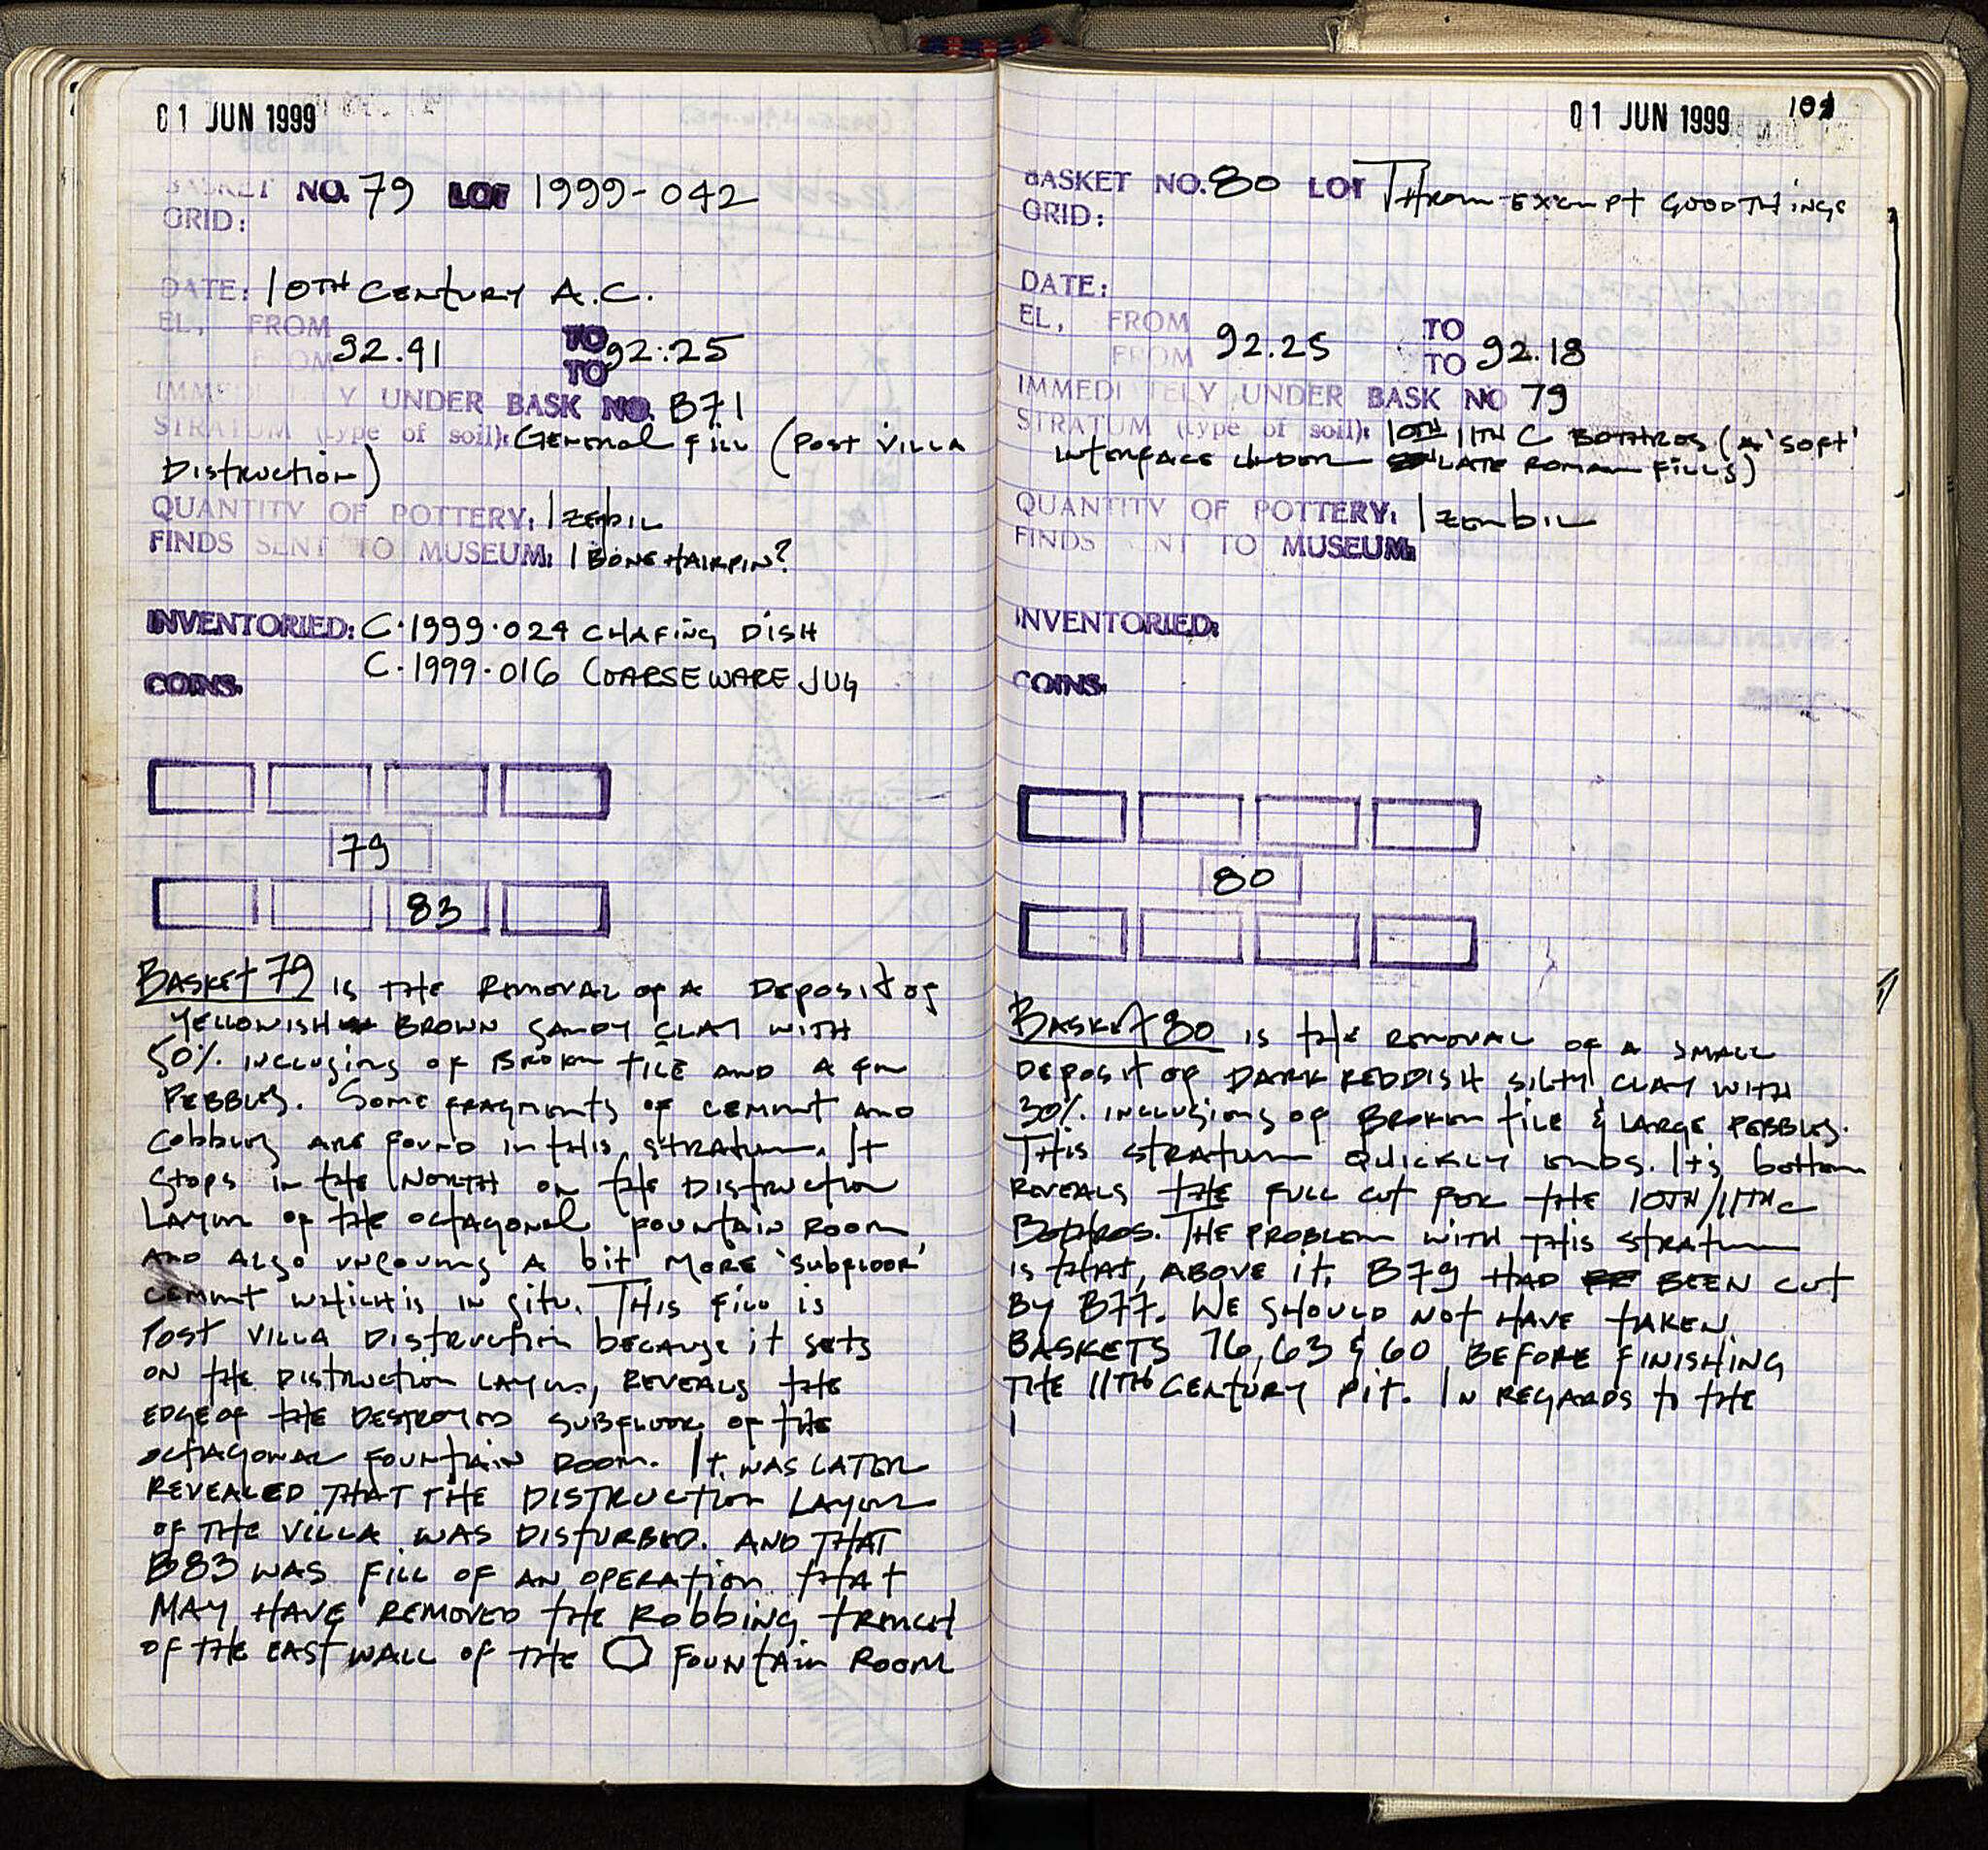 01 JUN 1999
BASKET NO. 79 LOT 1999-042
GRID:
DATE: 10TH CENTURY A.C.
EL, FROM
FROM 92.41 TO TO 92.25
IMMEDI Y UNDER BASK NO. B71
STRATUM (type of soil): GENERAL FILL (POST VILLA
DISTRUCTION)
QUANTITY OF POTTERY: 1 ZEMBIL
FINDS SENT TO MUSEUM: 1 BONE HAIRPIN?
INVENTORIED: C.1999.024 CHAFING DISH
C.1999.016 COARSEWARE JUG
COINS.
79
83
BASKET 79 IS THE REMOVAL OF A DEPOSIT OF
YELLOWISH BROWN SANDY CLAY WITH
50% INCLUSIONS OF BROKEN TILE AND A FEW
PEBBLES. SOME FRAGMENTS OF CEMENT AND
COBBLES ARE FOUND IN THIS STRATUM. IT
STOPS IN THE NORTH ON THE DISTRUCTION
LAYER OF THE OCTAGONAL FOUNTAIN ROOM
AND ALSO UNCOVERS A BIT MORE 'SUBFLOOR'
CEMENT WHICH IS IN SITU. THIS FILL IS
POST VILLA DISTRUCTION BECAUSE IT SETS
ON THE DISTRUCTION LAYER, REVEALS THE
EDGE OF THE DESTROYED SUBFLOOR OF THE
OCTAGONAL FOUNTAIN ROOM. IT WAS LATER
REVEALED THAT THE DISTRUCTION LAYER
OF THE VILLA WAS DISTURBED. AND THAT
B83 WAS FILL OF AN OPERATION THAT
MAY HAVE REMOVED THE ROBBING TRENCH
OF THE EAST WALL OF THE FOUNTAIN ROOM
01 JUN 1999
BASKET NO. 80 LOT THROWN EXEMPT GOOD THINGS
GRID:
DATE:
EL, FROM
FROM 92.25 TO TO 92.18
IMMEDI TELY UNDER BASK NO 79
STRATUM (type of soil): 10TH 11TH C BOTHROS (A 'SOFT'
INTERFACE UNDER LATE ROMAN FILLS)
QUANTITY OF POTTERY: 1 ZEMBIL
FINDS NT TO MUSEUM:
INVENTORIED:
COINS.
80
BASKET 80 IS THE REMOVAL OF A SMALL
DEPOSIT OF DARK REDDISH SILTY CLAY WITH
30% INCLUSIONS OF BROKEN TILE & LARGE PEBBLES.
THIS STRATUM QUICKLY ENDS. ITS BOTTOM
REVEALS THE FULL CUT FOR THE 10TH/11TH C
BOTHROS. THE PROBLEM WITH THIS STRATUM
IS THAT, ABOVE IT, B79 HAD BEEN CUT
BY B77. WE SHOULD NOT HAVE TAKEN
BASKETS 76, 63 & 60 BEFORE FINISHING
THE 11TH CENTURY PIT. IN REGARDS TO THE